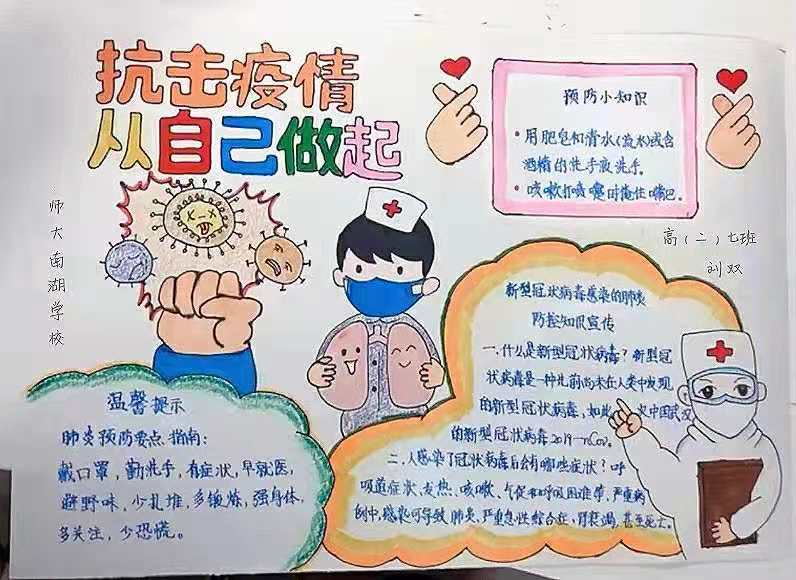 抗击疫情
从自己做起
师大南湖学校
预防小知识
• 用肥皂和清水(流水)或含
酒精的性手液洗手。
• 咳嗽打喷嚏时掩住嘴巴。
高(二)七班
刘双
新型冠状病毒感染的肺炎
防控知识宣传
一.什么是新型冠状病毒?新型冠
状病毒是一种此前尚未在人类中发现
的新型冠状病毒,如此 次中国武汉
的新型冠状病毒2019-nCov。
二.人感染了冠状病毒后会有哪些症状?呼
吸道症状、发热、咳嗽、气促和呼吸困难等,严重病
例中,感染可导致肺炎,严重急性综合症,肾衰竭,甚至死亡。
温馨提示
肺炎预防要点指南:
戴口罩,勤洗手,有症状,早就医,
避野味,少扎堆,多锻炼,强身体,
多关注,少恐慌。